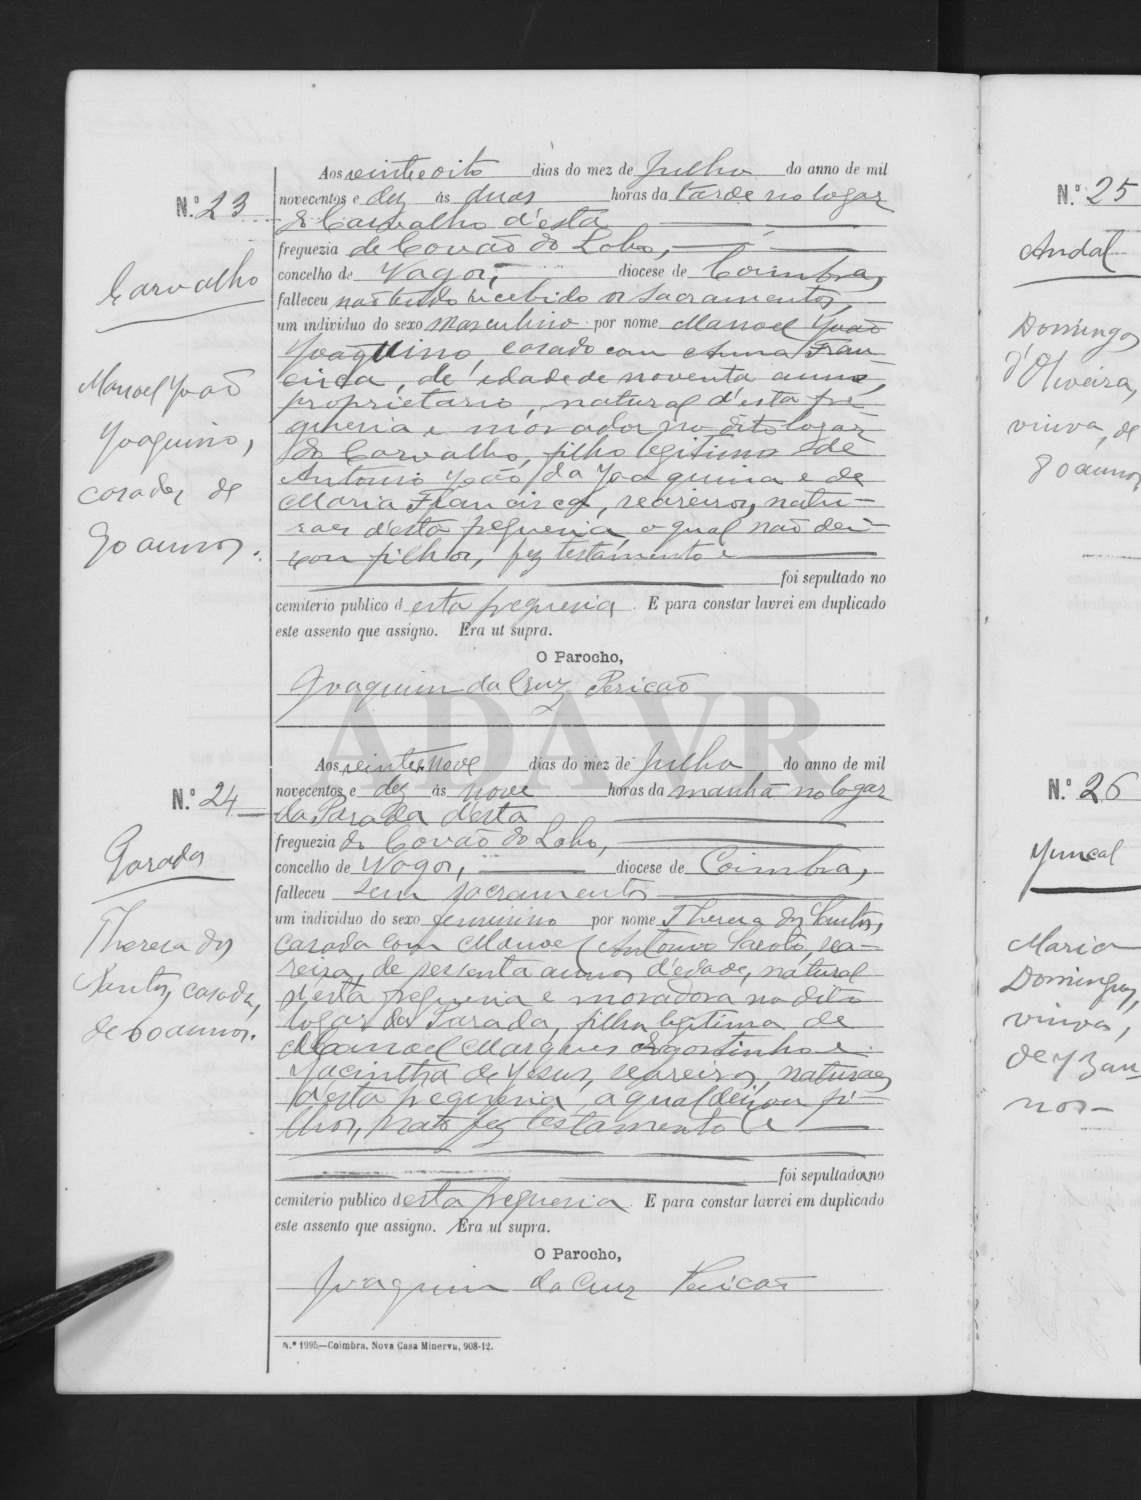 N.º 23
Carvalho
Manoel João
Joaquino,
casado, de
90 annos.
Aos vinte e oito dias do mez de Julho do anno de mil
novecentos e dez ás duas horas da tarde no logar
do Carvalho d'esta
freguezia de Covão do Lobo,
concelho de Vagos, diocese de Coimbra,
falleceu não tendo recebido os sacramentos,
um individuo do sexo masculino por nome Manoel João
Joaquino, casado com Anna Fran
cisca, de idade de noventa annos,
proprietario, natural d'esta fre
guesia e morador no dito logar
do Carvalho, filho legitimo de
Antonio João da Joaquina e de
Maria Francisca, seareiros, natu-
raes d'esta freguesia, o qual não dei-
xou filhos, fez testamento e
foi sepultado no
cemiterio publico d'esta freguesia. E para constar lavrei em duplicado
este assento que assigno. Era ut supra.
O Parocho,
Joaquim da Cruz Pericão
ADAVR
N.º 24
Parada
Thereza dos
Santos, casada,
de 60 annos.
Aos vinte e nove dias do mez de Julho do anno de mil
novecentos e dez ás nove horas da manhã no logar
da Parada d'esta
freguezia do Covão do Lobo,
concelho de Vagos, diocese de Coimbra,
falleceu sem sacramentos
um individuo do sexo feminino por nome Thereza dos Santos,
casada com Manoel Antonio, sea-
reira, de sessenta annos d'edade, natural
d'esta freguesia e moradora no dito
logar da Parada, filha legitima de
Manoel Marques Agostinho e
Jacintha de Jesus, seareiros, naturaes
d'esta freguesia, a qual deixou fi-
lhos, não fez testamento e
foi sepultada no
cemiterio publico d'esta freguesia. E para constar lavrei em duplicado
este assento que assigno. Era ut supra.
O Parocho,
Joaquim da Cruz Pericão
N.º 1995—Coimbra, Nova Casa Minerva, 908-12.
N.º 25
Andal
Domingos
d'Oliveira,
viuvo, de
80 annos
N.º 26
Juncal
Maria
Domingues,
viuva,
de 73 an
nos-